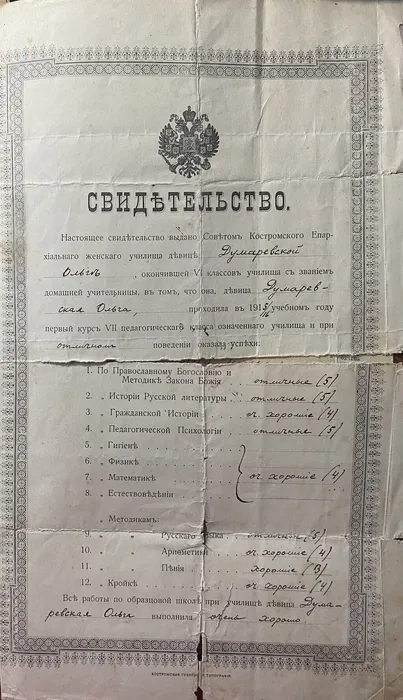 СВИДѢТЕЛЬСТВО.
Настоящее свидѣтельство выдано Совѣтомъ Костромского Епар-
хіальнаго женскаго училища дѣвицѣ Думаревской
Ольгѣ, окончившей VI классовъ училища съ званіемъ
домашней учительницы, въ томъ, что она, дѣвица Думарев-
ская Ольга, проходила въ 1915/16 учебномъ году
первый курсъ VII педагогическаго класса означеннаго училища и при
отличномъ поведеніи оказала успѣхи:
1. По Православному Богословію и
Методикѣ Закона Божія отличные (5)
2. „ Исторіи Русской литературы отличные (5)
3. „ Гражданской Исторіи оч. хорошіе (4)
4. „ Педагогической Психологіи отличные (5)
5. „ Гигіенѣ
6. „ Физикѣ
7. „ Математикѣ оч. хорошіе (4)
8. „ Естествовѣдѣнію
Методикамъ:
9. „ „ Русскаго языка отличные (5)
10. „ „ Ариѳметики оч. хорошіе (4)
11. „ „ Пѣнія хорошіе (3)
12. „ Кройкѣ оч. хорошіе (4)
Всѣ работы по образцовой школѣ при училищѣ дѣвица Дума-
ревская Ольга выполнила очень хорошо.
КОСТРОМСКАЯ ГУБЕРНСК. ТИПОГРАФІЯ